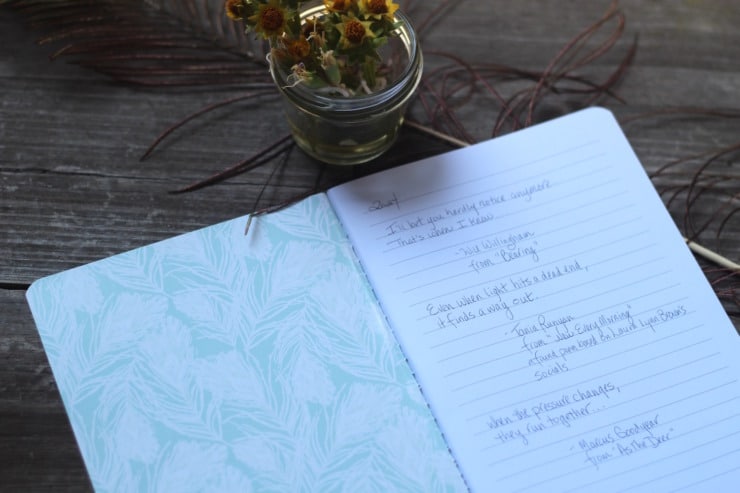 I'll bet you hardly notice anymore
That's when I know
- Will Willingham
from "Bearing"
Even when light hits a dead end,
it finds a way out.
- Tania Runyan
from Every Morning"
a found poem based on Laura Lynn Brown's
socials
when the pressure changes,
they run together...
- Marcus Goodyear
from "As The Deer"